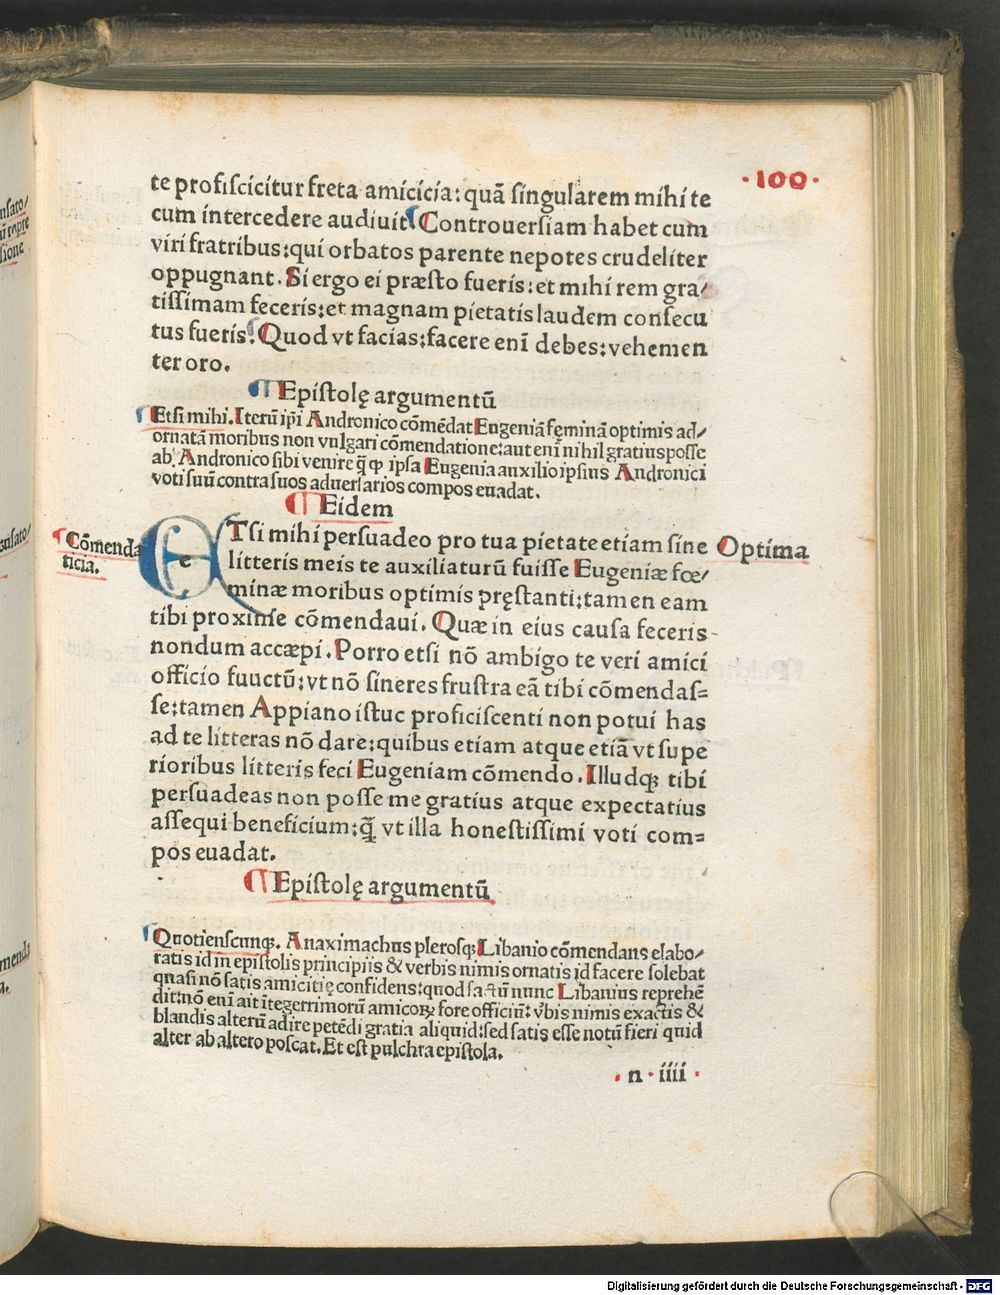 ·100·
te proficiſcitur freta amicicia: quã ſingularem mihi te
cum intercedere audiuit. Controuerſiam habet cum
viri fratribus: qui orbatos parente nepotes crudeliter
oppugnant. Si ergo ei præſto fueris: et mihi rem gra⸗
tiſſimam feceris: et magnam pietatis laudem conſecu
tus fueris. Quod vt facias: facere eni debes: vehemen
ter oro.
¶ Epiſtolę argumentũ
Etſi mihi. Iterũ ipi Andronico cõmẽdat Eugeniã fęminã optimis ad⸗
ornatã moribus non vulgari cõmendatione: aut eni nihil gratius poſſe
ab Andronico ſibi venire q̃ ꝙ ipſa Eugenia auxilio ipſius Andronici
voti ſuũ contra ſuos aduerſarios compos euadat.
¶ Eidem
¶ Cõmenda
ticia.
ETſi mihi perſuadeo pro tua pietate etiam ſine
Optima
litteris meis te auxiliaturũ fuiſſe Eugeniæ fœ⸗
minæ moribus optimis pręſtanti: tamen eam
tibi proxime cõmendaui. Quæ in eius cauſa feceris
nondum accæpi. Porro etſi nõ ambigo te veri amici
officio fuuctũ: vt nõ ſineres fruſtra eã tibi cõmendaſ⸗
ſe: tamen Appiano iſtuc proficiſcenti non potui has
ad te litteras nõ dare: quibus etiam atque etiã vt ſupe
rioribus litteris feci Eugeniam cõmendo. Illudqꝫ tibi
perſuadeas non poſſe me gratius atque expectatius
aſſequi beneficium: q̃ vt illa honeſtiſſimi voti com⸗
pos euadat.
¶ Epiſtolę argumentũ
Quotienſcunqꝫ. Anaximachus pleroſqꝫ Libanio cõmendans elabo⸗
ratis id in epiſtolis principiis & verbis nimis ornatis id facere ſolebat
quaſi nõ ſatis amicitię confidens: quod factũ nunc Libanius reprehẽ
dit: nõ eni ait ĩtegerrimorũ amicoꝝ fore officiũ: v̓bis nimis exactis &
blandis alterũ adire petẽdi gratia aliquid: ſed ſatis eſſe notũ fieri quid
alter ab altero poſcat. Et eſt pulchra epiſtola.
· n · iiii ·